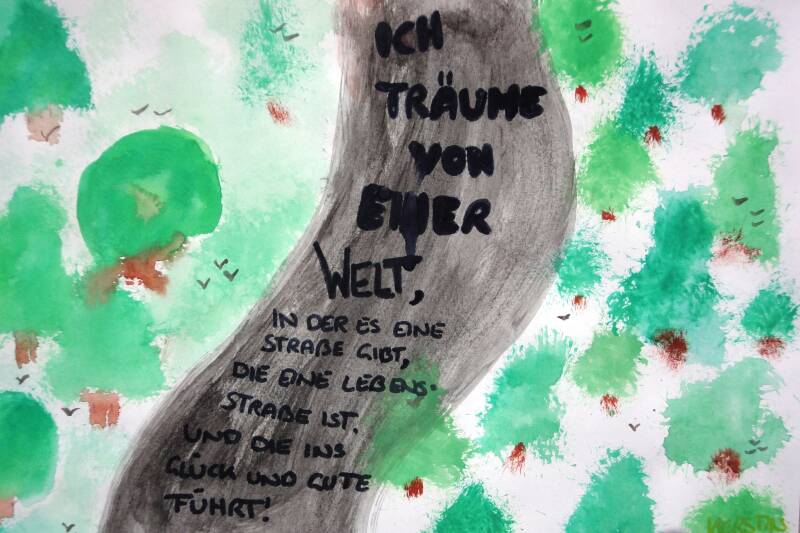 ICH
TRÄUME
VON
EINER
WELT,
IN DER ES EINE
STRAßE GIBT,
DIE EINE LEBENS-
STRAßE IST.
UND DIE INS
GLÜCK UND GUTE
FÜHRT!
KERSTIN